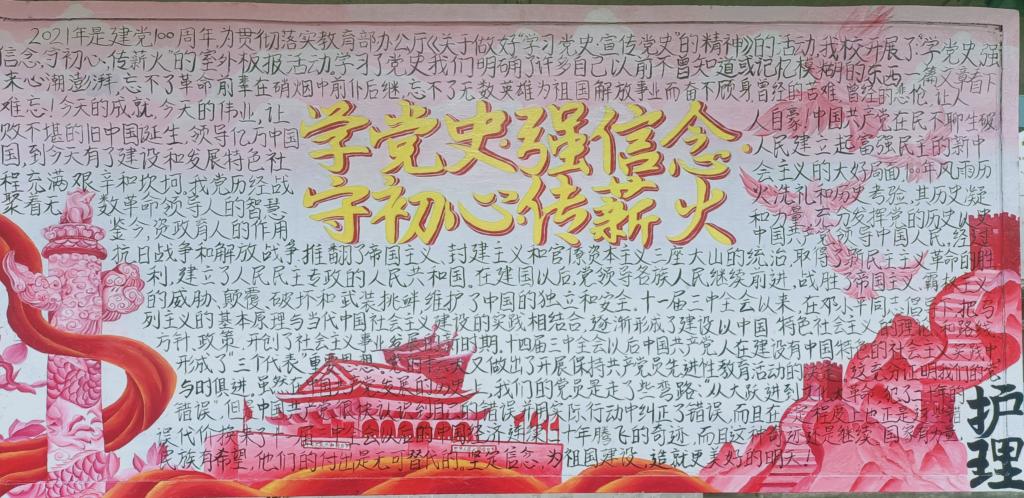 2021年是建党100周年为贯彻落实教育部办公厅《关于做好"学习党史·宣传党史"的精神》的活动,我校开展了"学党史,强
信念,守初心、传薪火"的室外板报活动。学习了党史我们明确了许多自己以前不曾知道或记忆模糊的东西,一篇文章看下
来心潮澎湃,忘不了革命前辈在硝烟中前仆后继,忘不了无数英雄为祖国解放事业而奋不顾身,曾经的苦难,曾经的悲怆,让人
难忘!今天的成就,今天的伟业,让
人自豪!中国共产党在民不聊生破
败不堪的旧中国诞生,领导亿万中国
人民建立起富强民主的新中
国,到今天有了建设和发展特色社
会主义的大好局面,100年风雨历
程充满艰辛和坎坷,我党历经战
火洗礼和历史考验,其历史凝
聚着无数革命领导人的智慧
和力量,充分发挥党的历史以史
鉴今,资政育人的作用
中国共产党领导中国人民,经过
学党史·强信念·
守初心·传薪火
抗日战争和解放战争,推翻了帝国主义、封建主义和官僚资本主义三座大山的统治,取得了新民主主义革命的胜
利,建立了人民民主专政的人民共和国。在建国以后,党领导各族人民继续前进,战胜了帝国主义、霸权主义
的威胁、颠覆、破坏和武装挑衅维护了中国的独立和安全,十一届三中全会以来,在邓小平同志倡导下,把马
列主义的基本原理与当代中国社会主义建设的实践相结合,逐渐形成了建设以中国特色社会主义的理论和路线
方针,政策,开创了社会主义事业发展的新时期,十四届三中全会以后中国共产党人在建设有中国特色的社会主义实践中
形成了"三个代表"重要思想,又做出了开展保持共产党员先进性教育活动的决定,充分证明我们的党
与时俱进,虽然在中国发展的历史上,我们的党员是走了些弯路:"从大跃进到
错误"但是中国共产党很快认识到自己的错误,用实际行动中纠正了错误,而且在程度上也正是
误代价换来了十一届三中全会以后的中国经济建设二十年腾飞的奇迹,而且这种奇迹还是继续,国家有力量,
民族有希望,他们的付出是无可替代的,坚定信念,为祖国建设,造就更美好的明天!
护理